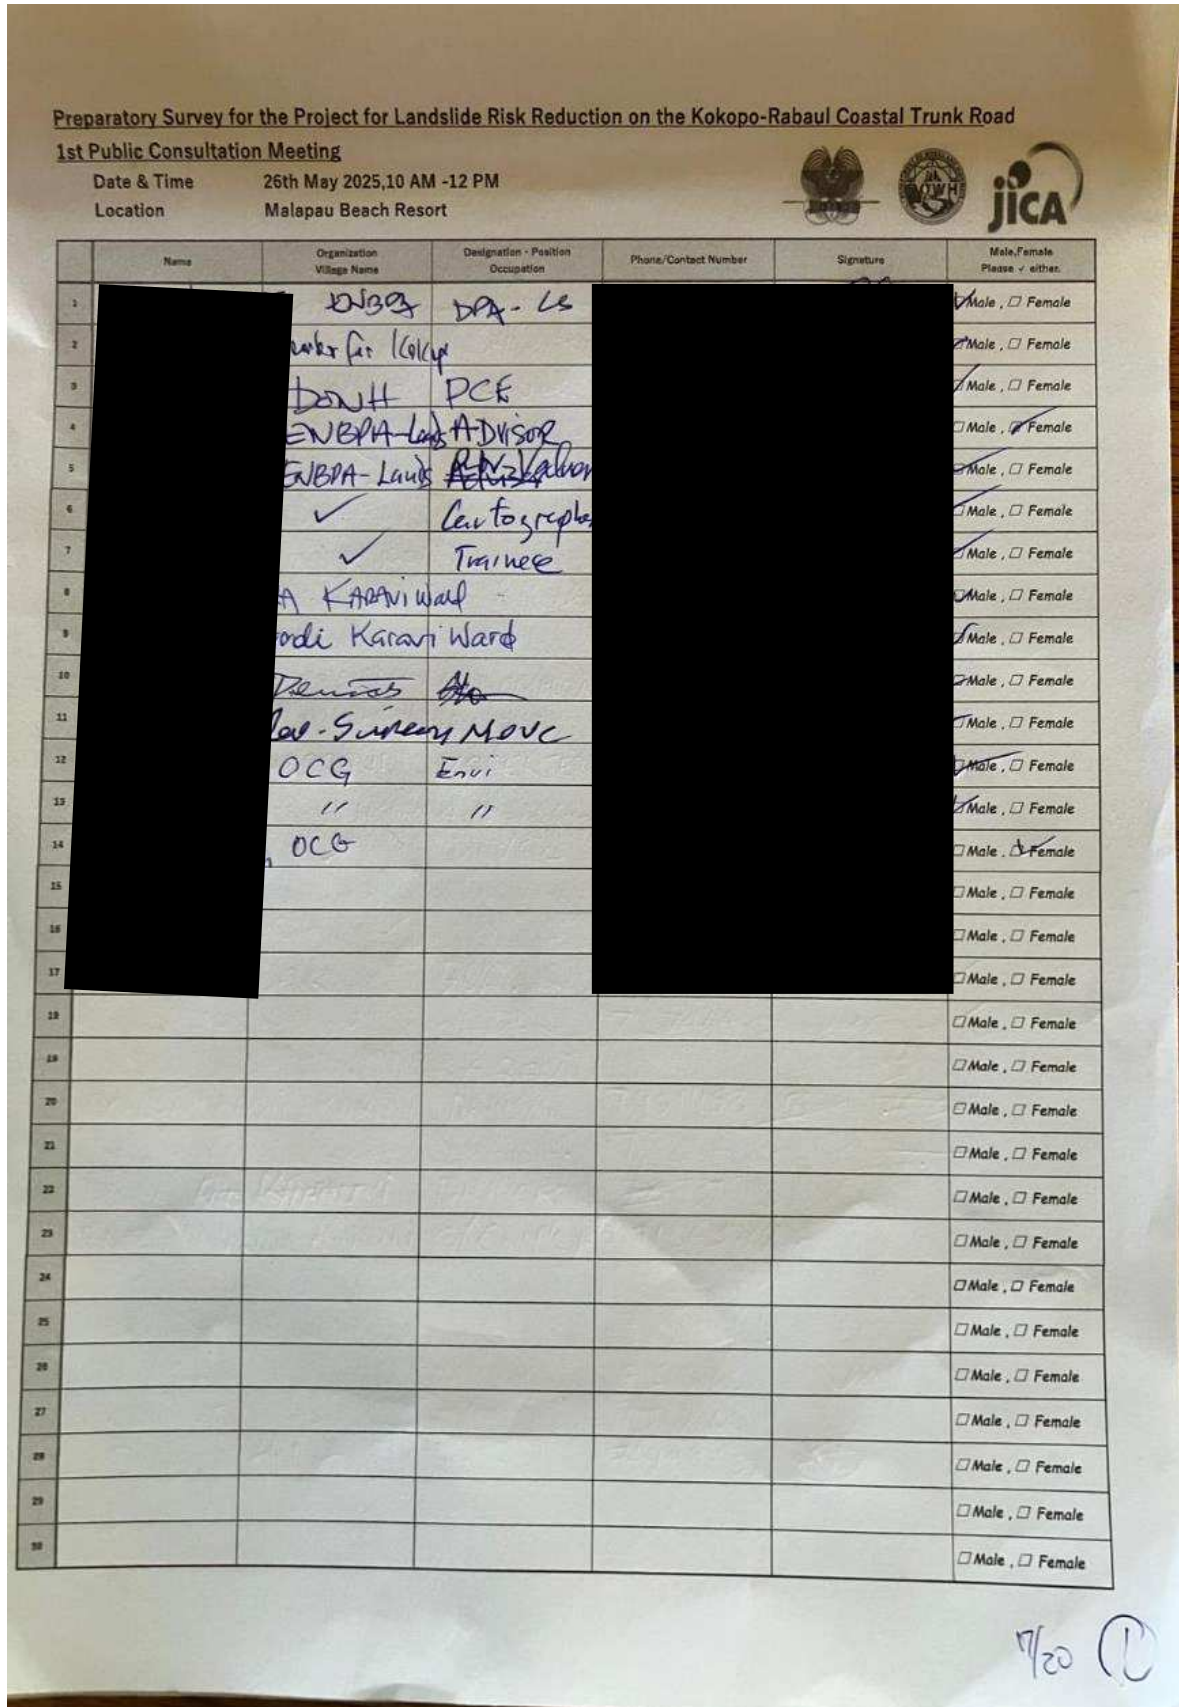 Preparatory Survey for the Project for Landslide Risk Reduction on the Kokopo-Rabaul Coastal Trunk Road
1st Public Consultation Meeting
Date & Time 26th May 2025,10 AM -12 PM
Location Malapau Beach Resort
JICA
Name Organization Village Name Designation - Position Occupation Phone/Contact Number Signature Male,Female Please ✓ either.
1 DPA - LS ☑ Male , ☐ Female
2 for ☑ Male , ☐ Female
3 PCE ☑ Male , ☐ Female
4 ENBPA-Lands ADVISOR ☐ Male , ☑ Female
5 ENBPA-Lands ☑ Male , ☐ Female
6 ✓ Cartographe ☑ Male , ☐ Female
7 ✓ Trainee ☑ Male , ☐ Female
8 A KARAVI Ward ☑ Male , ☐ Female
9 Karavi Ward ☑ Male , ☐ Female
10 ☑ Male , ☐ Female
11 ☑ Male , ☐ Female
12 OCG Envi ☑ Male , ☐ Female
13 " " ☑ Male , ☐ Female
14 OCG ☐ Male , ☑ Female
15 ☐ Male , ☐ Female
16 ☐ Male , ☐ Female
17 ☐ Male , ☐ Female
18 ☐ Male , ☐ Female
19 ☐ Male , ☐ Female
20 ☐ Male , ☐ Female
21 ☐ Male , ☐ Female
22 ☐ Male , ☐ Female
23 ☐ Male , ☐ Female
24 ☐ Male , ☐ Female
25 ☐ Male , ☐ Female
26 ☐ Male , ☐ Female
27 ☐ Male , ☐ Female
28 ☐ Male , ☐ Female
29 ☐ Male , ☐ Female
30 ☐ Male , ☐ Female